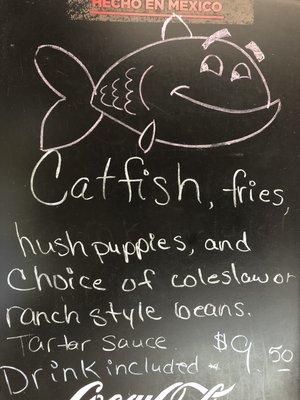 HECHO EN MEXICO
Catfish, fries,
hush puppies, and
Choice of coleslaw or
ranch style beans.
Tartar Sauce. $9.50
Drink included
Coca-Cola